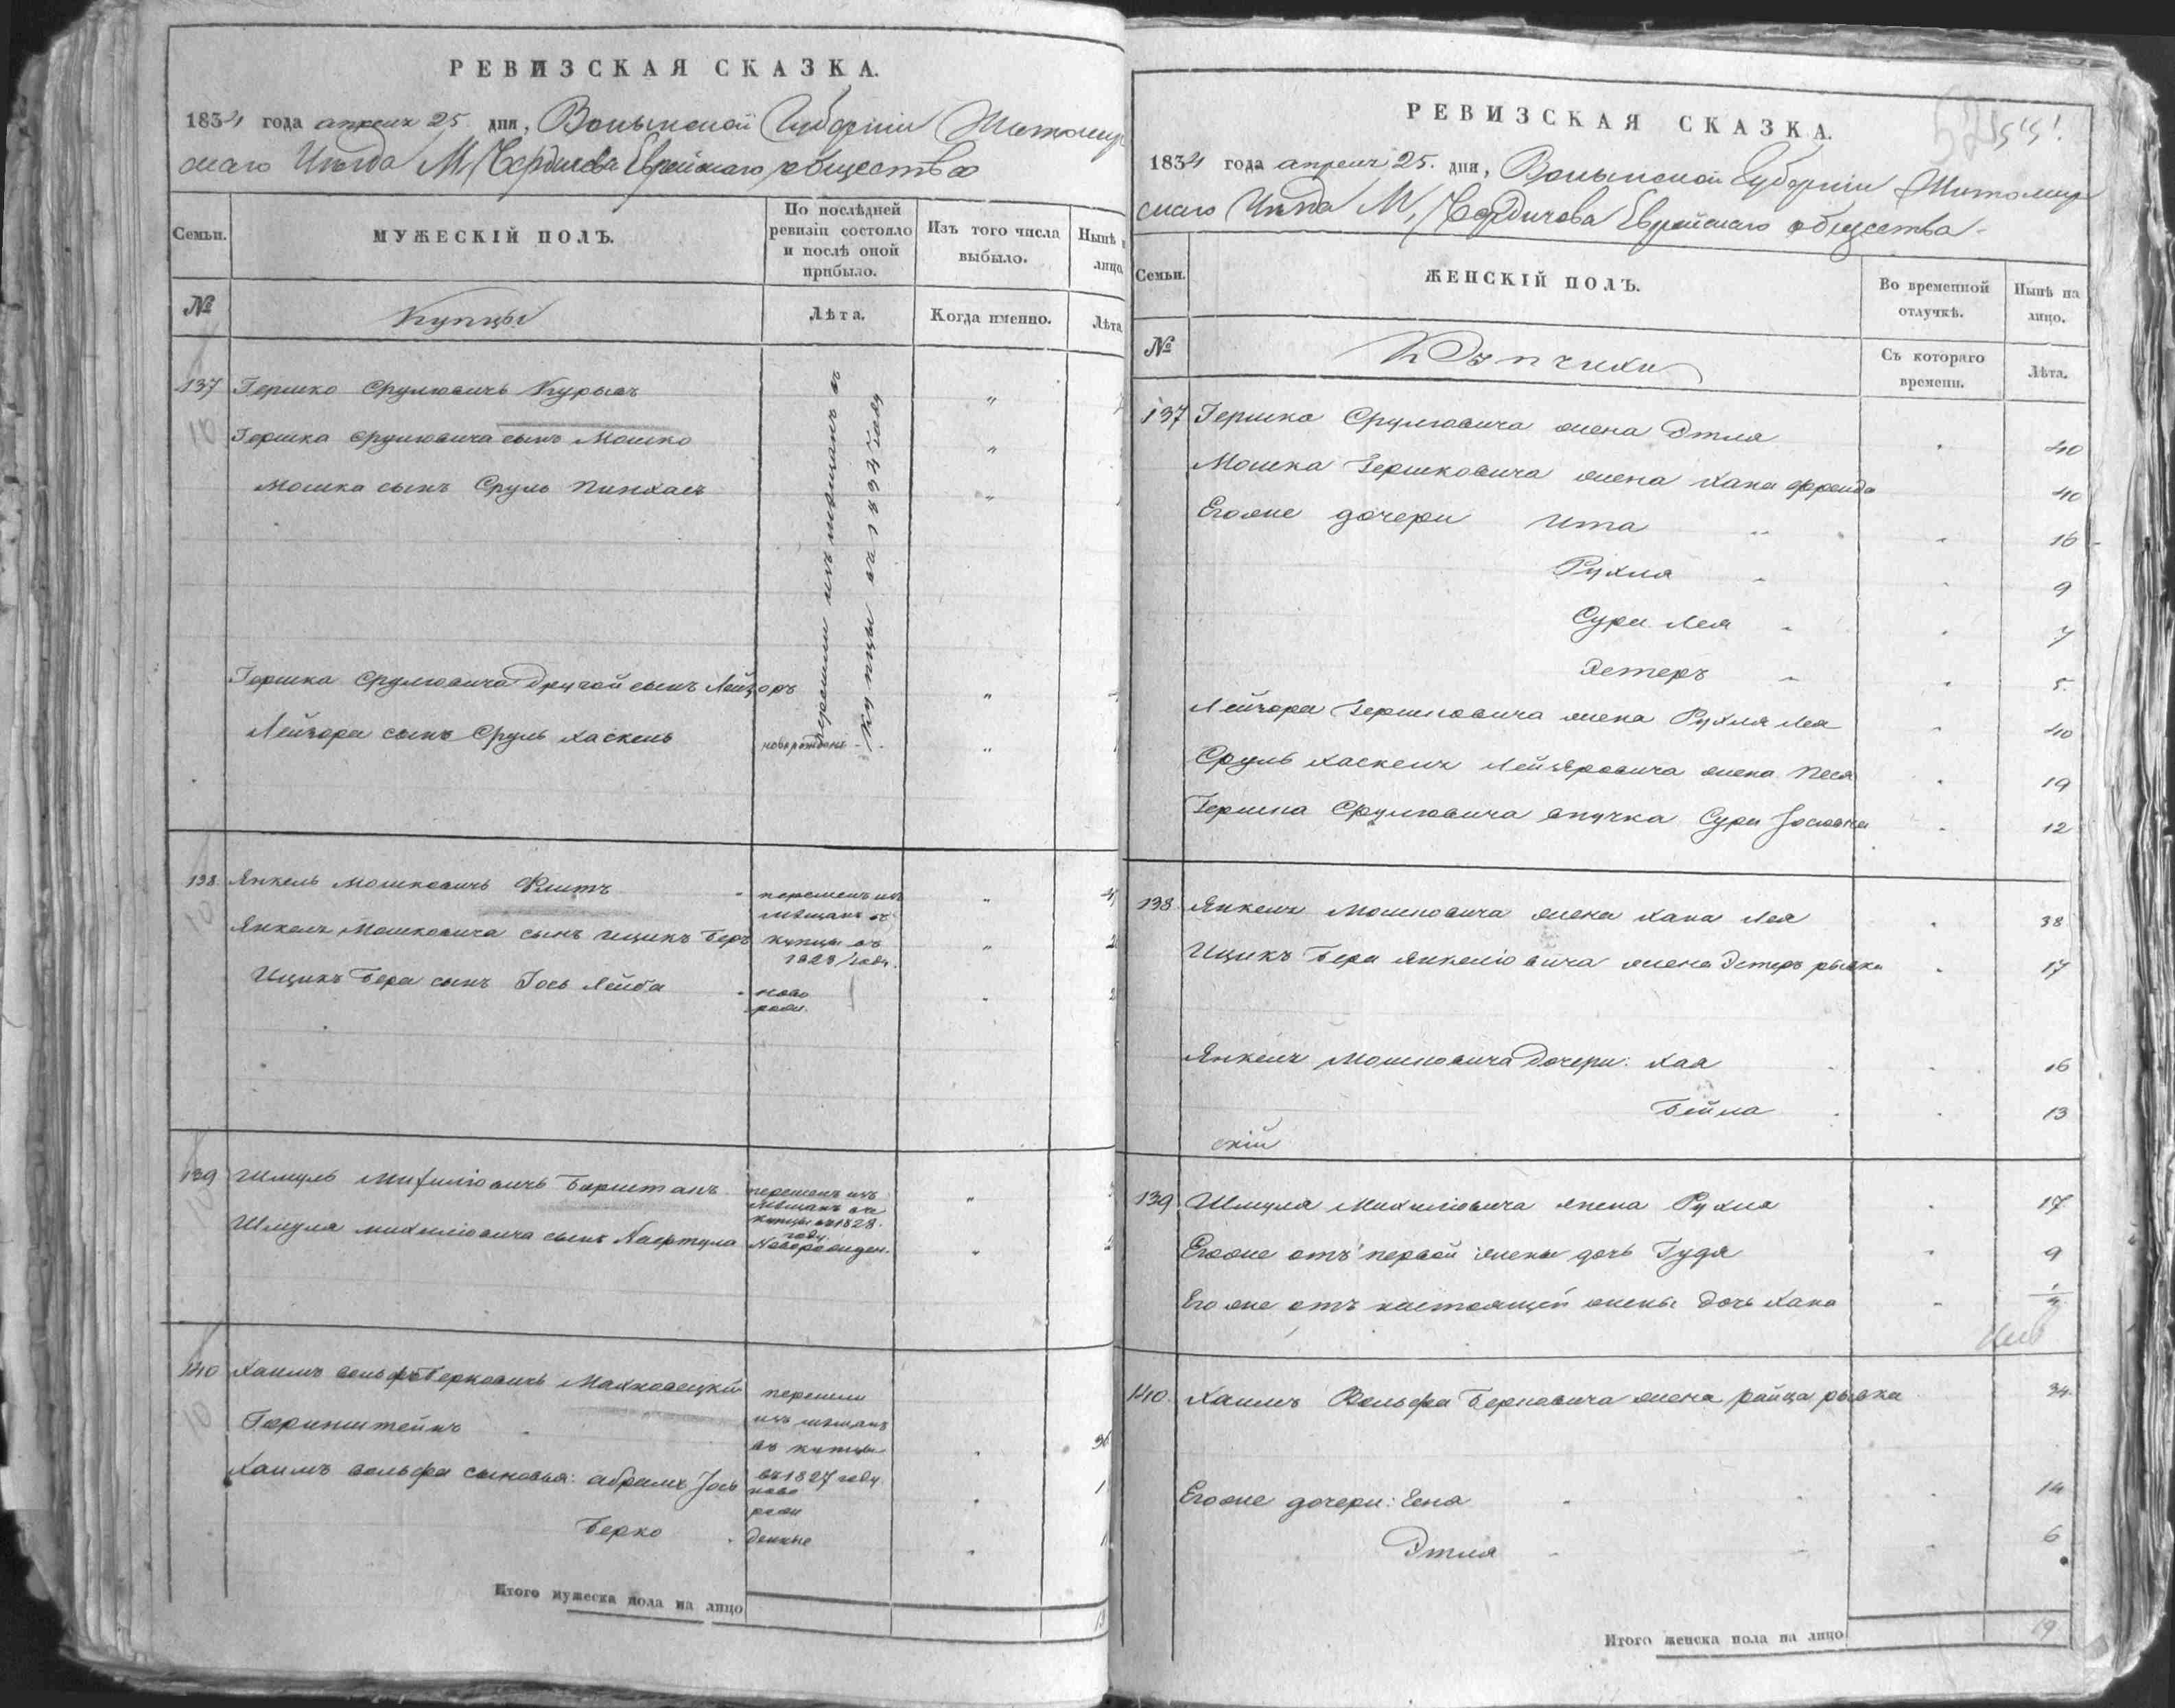 РЕВИЗСКАЯ СКАЗКА.
1834 года апреля 25 дня, Волынской Губернiи Житомир
скаго Уѣзда М. Бердичева Еврейскаго общества
Семьи.
МУЖЕСКIЙ ПОЛЪ.
По послѣдней
ревизiи состояло
и послѣ оной
прибыло.
Изъ того числа
выбыло.
Нынѣ
лицо
№
Купцы
Лѣта.
Когда именно.
Лѣта
перешли изъ мѣщанъ въ
Купцы въ 1834 году
137 Гершко Срулювичъ
10
Гершка Срулювича сынъ Мошко
Мошка сынъ Сруль Пинхасъ
Гершка Срулювича другой сынъ Лейзоръ
Лейзора сынъ Сруль Хаскель
138 Янкель Мошковичъ
перешелъ изъ
мѣщанъ въ
купцы въ
году
10
Янкеля Мошковича сынъ Ицикъ Беръ
Ицикъ Бера сынъ Iось Лейба
ново
рожд.
139 Шмуль Михилiовичъ
перешелъ изъ
мѣщанъ въ
купцы въ 1828
году
10
Шмуля Михилiовича сынъ Нафтула
Новорожден.
140 Хаимъ Вольфъ Берковичъ Махновецкiй
Горинштейнъ
перешли
изъ мѣщанъ
въ купцы
въ 1827 году
10
36
Хаимъ Вольфа сыновья: Абрамъ Iось
ново
рож
Берко
денные
Итого мужеска пола на лицо
РЕВИЗСКАЯ СКАЗКА.
1834 года апреля 25. дня, Волынской Губернiи Житомир
скаго Уѣзда М. Бердичева Еврейскаго общества
Семьи.
ЖЕНСКIЙ ПОЛЪ.
Во временной
отлучкѣ.
Нынѣ на
лицо.
№
Купчихи
Съ котораго
времени.
Лѣта.
137 Гершка Срулювича жена Этля 40
Мошка Гершковича жена Хана Фрейда 40
Егоже дочери Ита 16
Рухля 9
Сура Лея 7
Эстеръ 5.
Лейзора Гершковича жена Рухля Лея 40
Сруль Хаскеля Лейзеровича жена Песя 19
Гершка Срулювича внучка Сура Iосювна 12
138 Янкеля Мошковича жена Хана Лея 38
Ицикъ Бера Янкелiовича жена Эстеръ Рывка 17
Янкеля Мошковича дочери: Хая 16
Бейла 13
скiй
139 Шмуля Михилiовича жена Рухля 17
Егоже отъ первой жены дочь Гудя 9
Егоже отъ настоящей жены дочь Хана
140. Хаимъ Вольфа Берковича жена Райца Рывка 34.
Егоже дочери: Гена 14
Этля 6
Итого женска пола на лицо 19